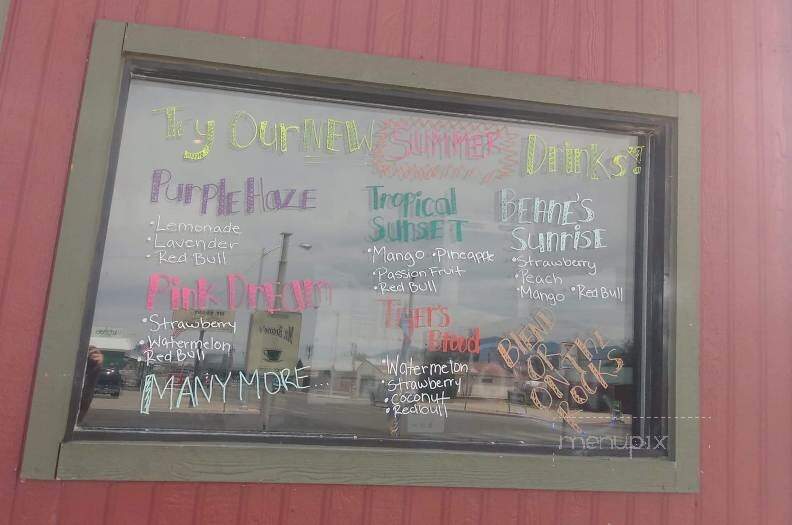 Try Our NEW SUMMER Drinks!
Purple Haze
• Lemonade
• Lavender
• Red Bull
Tropical
Sunset
• Mango • Pineapple
• Passion Fruit
• Red Bull
BEANE'S
Sunrise
• Strawberry
• Peach
• Mango • Red Bull
Pink Dream
• Strawberry
• Watermelon
Red Bull
Tiger's
Blood
• Watermelon
• Strawberry
• Coconut
• Redbull
BLEND
OR
ON THE
ROCKS
MANY MORE...
menupix